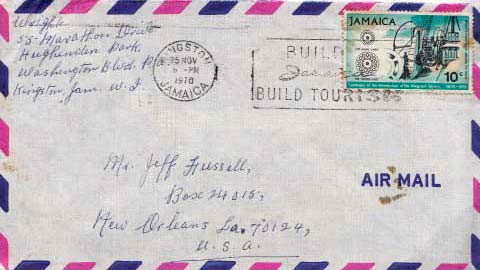 Wright
58 Marathon Drive
Hughenden Park
Washington Blvd.
Kingston, Jam. W. I.
KINGSTON
25 NOV
6 - PM
1970
JAMAICA
BUILD
Jamaica
BUILD TOURISM
JAMAICA
10c
Centenary of the Introduction of the Telegraph Service 1870-1970
AIR MAIL
Mr. Jeff Fussell,
Box 24015,
New Orleans La. 70124,
U. S. A.